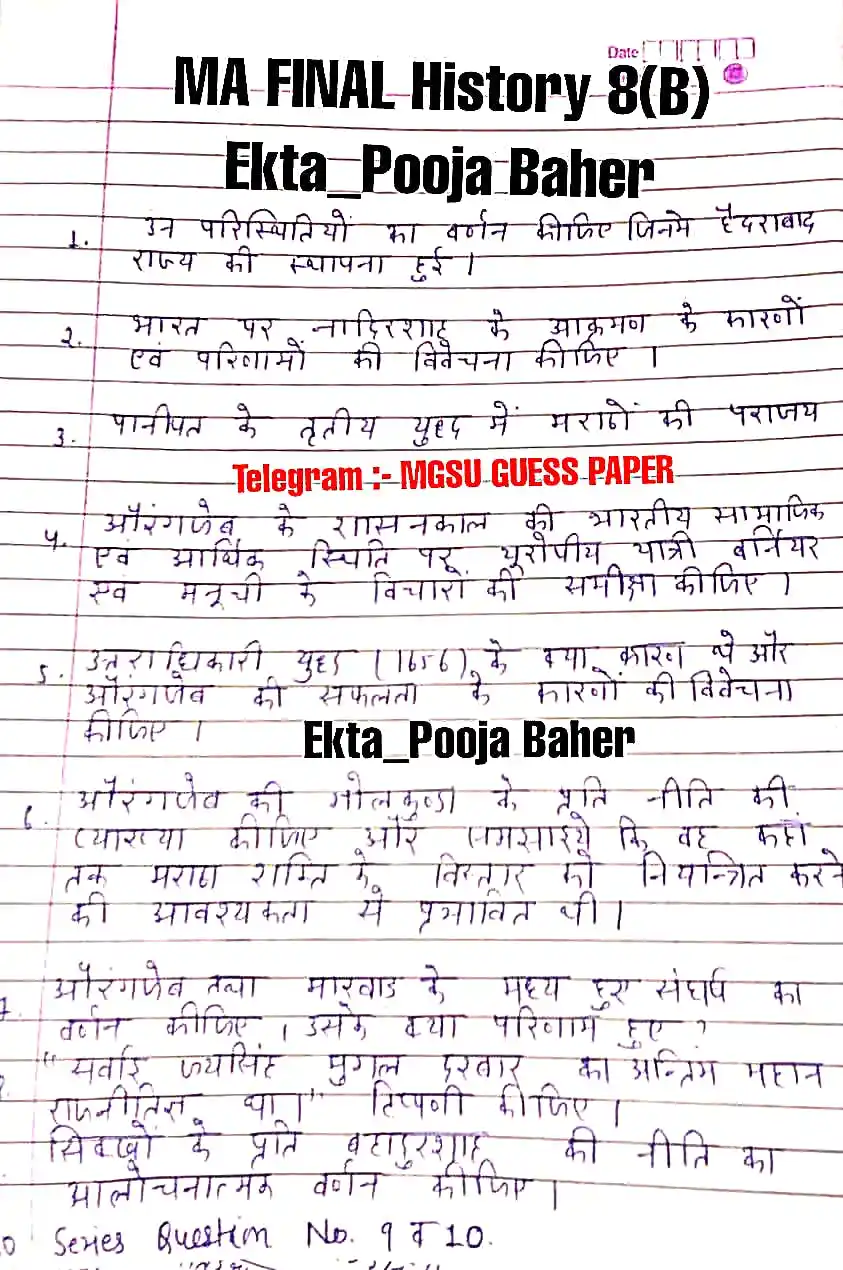 Date
MA FINAL History 8(B)
Ekta_Pooja Baher
1. उन परिस्थितियों का वर्णन कीजिए जिनमे हैदराबाद
राज्य की स्थापना हुई ।
2. भारत पर नादिरशाह के आक्रमण के कारणों
एवं परिणामों की विवेचना कीजिए ।
3. पानीपत के तृतीय युद्ध में मराठों की पराजय
Telegram :- MGSU GUESS PAPER
4. औरंगजेब के शासनकाल की भारतीय सामाजिक
एवं आर्थिक स्थिति पर यूरोपीय यात्री बर्नियर
एवं मनूची के विचारों की समीक्षा कीजिए ।
5. उत्तराधिकारी युद्ध (1656) के क्या कारण थे और
औरंगजेब की सफलता के कारणों की विवेचना
कीजिए ।
Ekta_Pooja Baher
6. औरंगजेब की गोलकुण्डा के प्रति नीति की
व्याख्या कीजिए और समझाइये कि वह कहां
तक मराठा शक्ति के विस्तार को नियन्त्रित करने
की आवश्यकता से प्रभावित थी ।
7. औरंगजेब तथा मारवाड के मध्य हुए संघर्ष का
वर्णन कीजिए । उसके क्या परिणाम हुए ?
"सवाई जयसिंह मुगल दरबार का अन्तिम महान
राजनीतिज्ञ था।" टिप्पणी कीजिए ।
सिक्खों के प्रति बहादुरशाह की नीति का
आलोचनात्मक वर्णन कीजिए ।
Series Question No. 9 व 10.